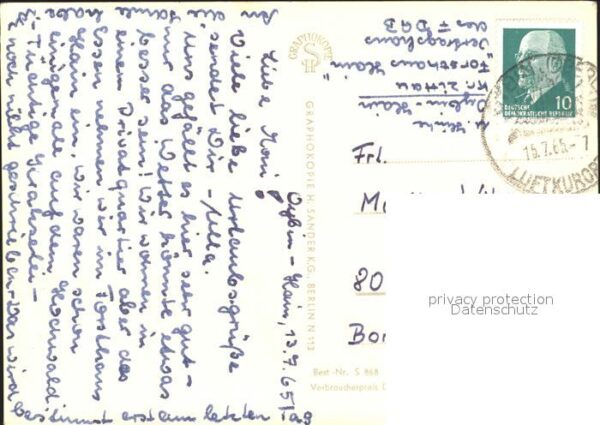 Oybin-Hain, 13.7.65
Liebe Moni!
Viele liebe Urlaubsgrüße
sendet Dir - Ulla.
Uns gefällt es hier sehr gut -
nur das Wetter könnte etwas
besser sein! Wir wohnen in
einem Privatquartier aber das
Essen nehmen wir im Forsthaus
Hain ein. Wir waren schon
einigemale auf dem Hochwald.
Tüchtige
ist noch nicht geschrieben. Das wird
bestimmt erst am letzten Tag
An die
habe
GRAPHOKOPIE
SH
GRAPHOKOPIE H. SANDER K.G. BERLIN N 113
Best.-Nr. S 868
Verbraucherpreis
Oybin-Hain
Kr. Zittau
Forsthaus Hain
Vertragshaus
des FDGB
DEUTSCHE
DEMOKRATISCHE REPUBLIK
10
15.7.65.-7
LUFTKURORT
Frl.
80
privacy protection
Datenschutz